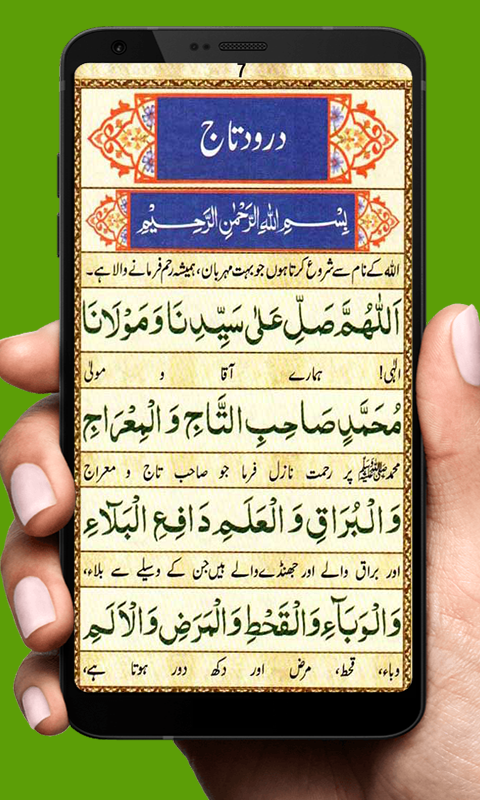 7
درود تاج
بِسْمِ اللهِ الرَّحْمٰنِ الرَّحِيْمِ
اللہ کے نام سے شروع کرتا ہوں جو بہت مہربان، ہمیشہ رحم فرمانے والا ہے۔
اَللّٰهُمَّ صَلِّ عَلٰى سَيِّدِنَا وَمَوْلَانَا
الٰہی! ہمارے آقا و مولیٰ
مُحَمَّدٍ صَاحِبِ التَّاجِ وَالْمِعْرَاجِ
محمد ﷺ پر رحمت نازل فرما جو صاحب تاج و معراج
وَالْبُرَاقِ وَالْعَلَمِ دَافِعِ الْبَلَآءِ
اور براق والے اور جھنڈے والے ہیں جن کے وسیلے سے بلاء،
وَالْوَبَآءِ وَالْقَحْطِ وَالْمَرَضِ وَالْاَلَمِ
وباء، قحط، مرض اور دکھ دور ہوتا ہے،